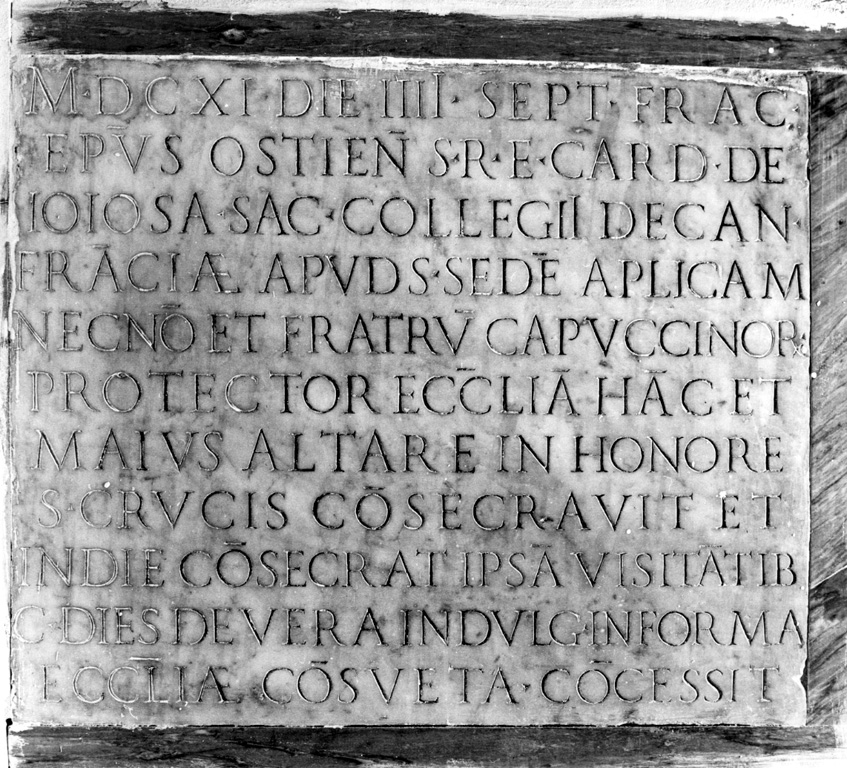 M·DCXI·DIE IIII· SEPT· FRAC·
EPV̄S OSTIEN̄ S·R·E·CARD·DE
IOIOSA·SAC·COLLEGII DECAN·
FRĀCIÆ APVD S·SEDĒ APLICAM
NECNŌ ET FRATRV̄ CAPVCCINOR
PROTECTOR ECC̄LIĀ HĀC ET
MAIVS ALTARE IN HONORE
S·CRVCIS CŌSECRAVIT ET
INDIE CŌSECRAT IPSĀ VISITĀTIB
C·DIES DE VERA INDVLG·INFORMA
ECC̄LIÆ CŌSVETA·CŌCESSIT